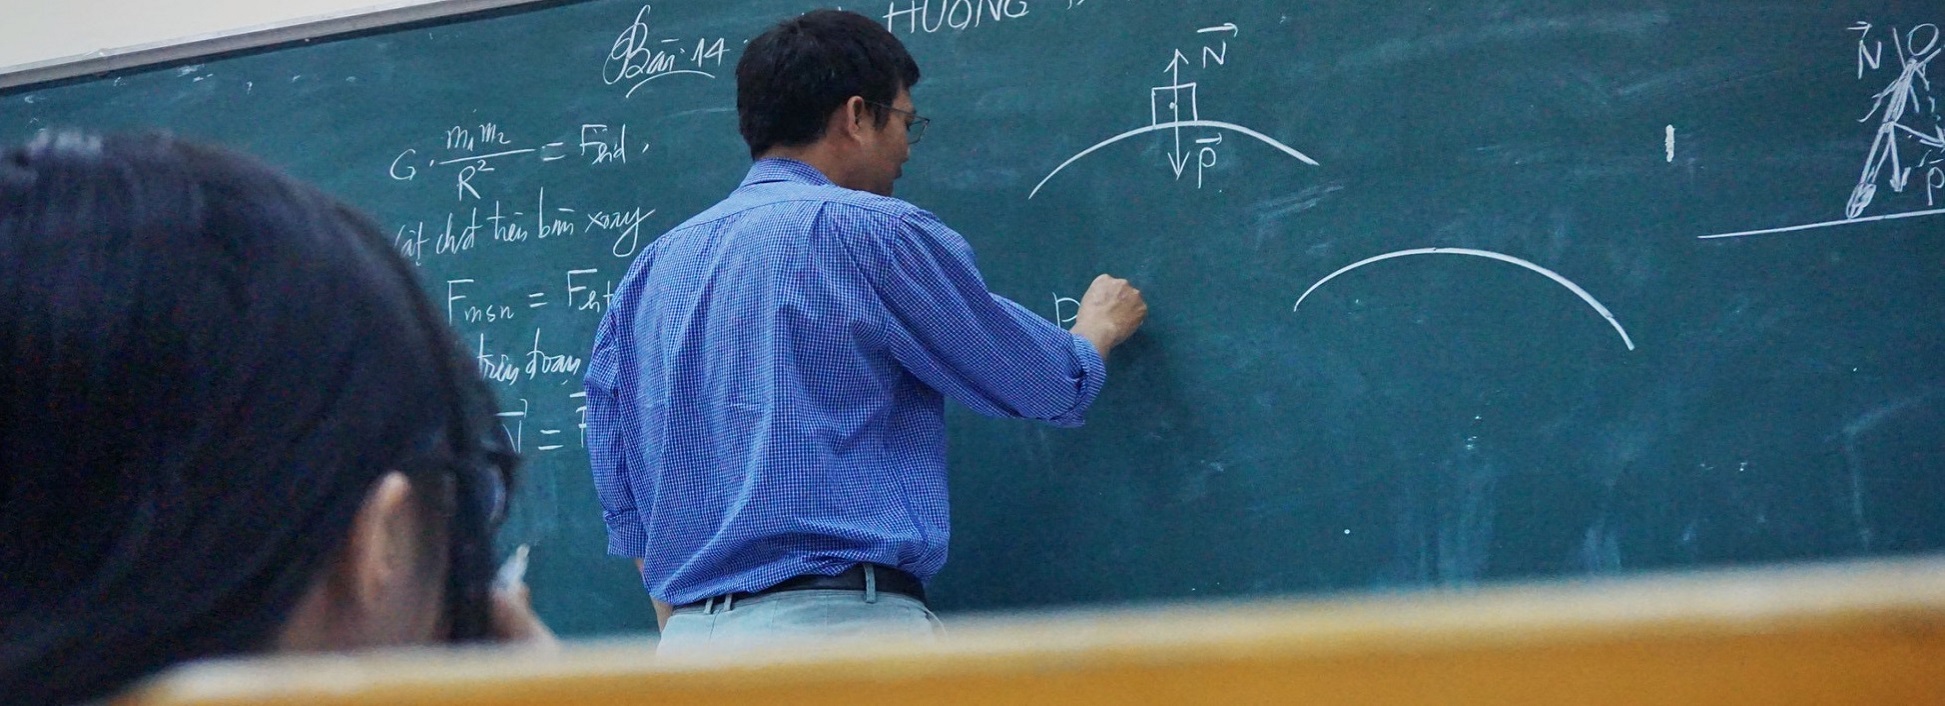 Bài 14
HƯỚNG
G . m₁m₂ / R² = Fhd .
Vật chất trên bàn xoay
Fmsn = Fht
trên đoạn
N =
N
P
P
N
P